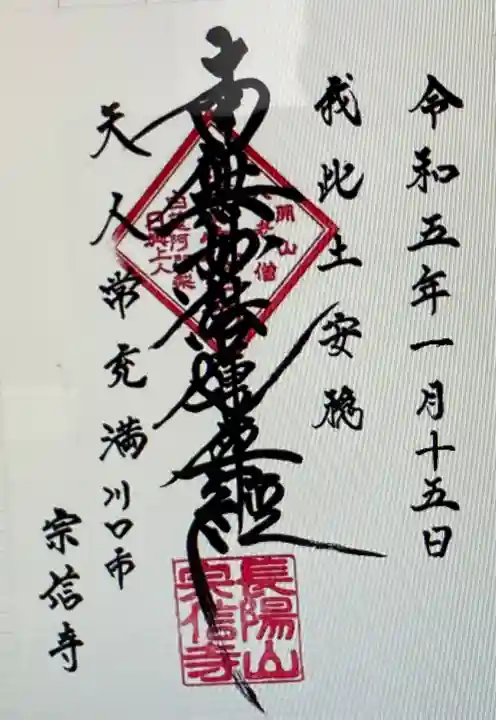 令和五年一月十五日
我此土安穏
南無妙法蓮華経
天人常充満
川口市
宗信寺
開山
老僧
白蓮阿闍梨
日興上人
長陽山
宗信寺